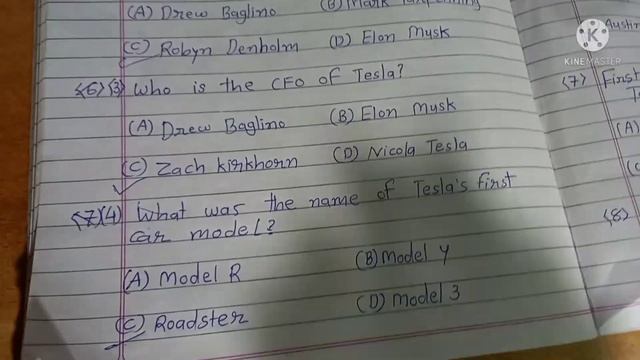 (A) Drew Baglino (B) Mark
(C) Robyn Denholm (D) Elon Musk
<6>(3) Who is the CFO of Tesla?
(A) Drew Baglino (B) Elon Musk
(C) Zach Kirkhorn (D) Nicola Tesla
<7>(4) What was the name of Tesla's first
car model?
(A) Model R (B) Model Y
(C) Roadster (D) Model 3
Austin
K
KINEMASTER
<7) First
(A)
<8)